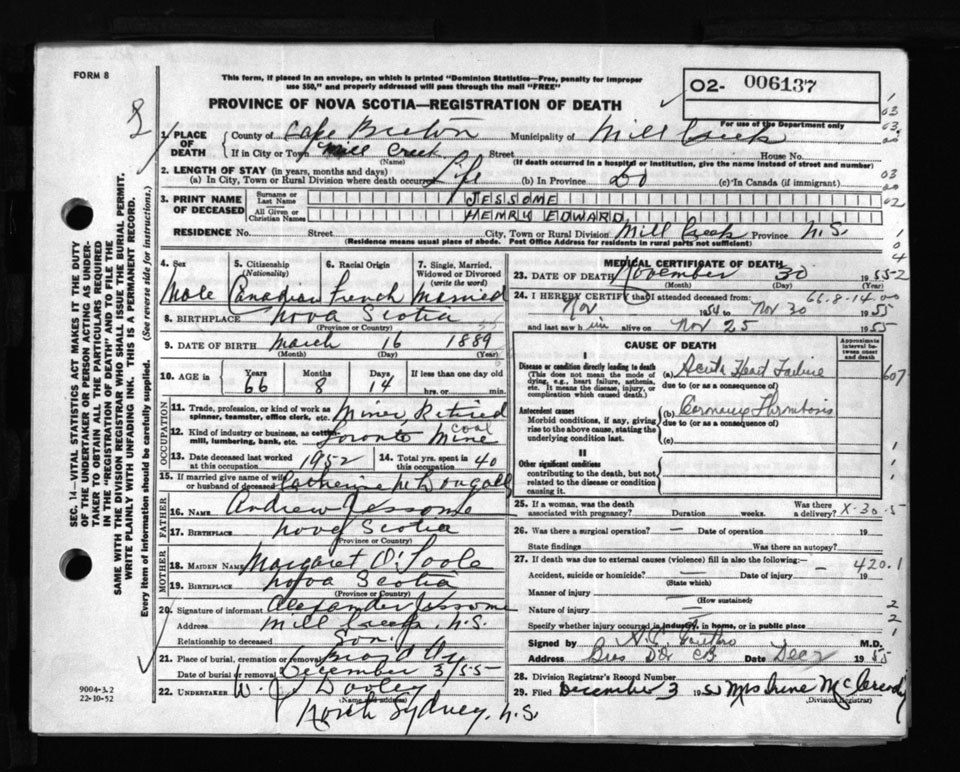 FORM 8
This form, if placed in an envelope, on which is printed "Dominion Statistics—Free, penalty for improper
use $50," and properly addressed will pass through the mail "FREE"
02- 006137
PROVINCE OF NOVA SCOTIA—REGISTRATION OF DEATH
For use of the Department only
1. PLACE OF DEATH
County of Cape Breton Municipality of Mill Creek
If in City or Town Mill Creek Street House No.
(Name) (If death occurred in a hospital or institution, give the name instead of street and number)
2. LENGTH OF STAY (in years, months and days)
(a) In City, Town or Rural Division where death occurred Life (b) In Province Do (c) In Canada (if immigrant)
3. PRINT NAME OF DECEASED
Surname or Last Name JESSOME
All Given or Christian Names HENRY EDWARD
RESIDENCE No. Street City, Town or Rural Division Mill Creek Province N.S.
(Residence means usual place of abode. Post Office Address for residents in rural parts not sufficient)
4. Sex Male
5. Citizenship (Nationality) Canadian
6. Racial Origin French
7. Single, Married, Widowed or Divorced (write the word) Married
8. BIRTHPLACE Nova Scotia
(Province or Country)
9. DATE OF BIRTH March 16 1889
(Month) (Day) (Year)
10. AGE in Years 66 Months 8 Days 14 If less than one day old
hrs. or min.
OCCUPATION
11. Trade, profession, or kind of work as spinner, teamster, office clerk, etc. Miner Retired
12. Kind of industry or business, as cotton mill, lumbering, bank, etc. Toronto coal Mine
13. Date deceased last worked at this occupation 1952
14. Total yrs. spent in this occupation 40
15. If married give name of wife or husband of deceased Catherine McDougall
FATHER
16. NAME Andrew Jessome
17. BIRTHPLACE Nova Scotia
(Province or Country)
MOTHER
18. MAIDEN NAME Margaret O'Toole
19. BIRTHPLACE Nova Scotia
(Province or Country)
20. Signature of informant Alexander Jessome
Address Mill Creek, N.S.
Relationship to deceased Son
21. Place of burial, cremation or removal
Date of burial or removal December 3/55
22. UNDERTAKER W. J. Dooley
(Name and address)
North Sydney, N.S.
MEDICAL CERTIFICATE OF DEATH
23. DATE OF DEATH November 30 1955
(Month) (Day) (Year)
66-8-14
24. I HEREBY CERTIFY that I attended deceased from:
Nov 1954 to Nov 30 1955
and last saw him alive on Nov 25 1955
CAUSE OF DEATH
Approximate interval between onset and death
I
Disease or condition directly leading to death
(This does not mean the mode of dying, e.g., heart failure, asthenia, etc. It means the disease, injury, or complication which caused death.)
(a) Acute Heart Failure
due to (or as a consequence of)
607
Antecedent causes
Morbid conditions, if any, giving rise to the above cause, stating the underlying condition last.
(b) Coronary Thrombosis
due to (or as a consequence of)
(c)
II
Other significant conditions
contributing to the death, but not related to the disease or condition causing it.
25. If a woman, was the death associated with pregnancy? Duration weeks. Was there a delivery? X-30-5
26. Was there a surgical operation? — Date of operation 19
State findings Was there an autopsy?
27. If death was due to external causes (violence) fill in also the following:— 420.1
Accident, suicide or homicide? Date of injury 19
(State which)
Manner of injury
(How sustained)
Nature of injury
Specify whether injury occurred in industry, in home, or in public place
Signed by M.D.
Address Bras D'Or CB Date Dec 2 1955
28. Division Registrar's Record Number
29. Filed December 3 195 Mrs Irene
(Division Registrar)
SEC. 14—VITAL STATISTICS ACT MAKES IT THE DUTY
OF THE UNDERTAKER OR PERSON ACTING AS UNDER-
TAKER TO OBTAIN ALL THE PARTICULARS REQUIRED
IN THE "REGISTRATION OF DEATH" AND TO FILE THE
SAME WITH THE DIVISION REGISTRAR WHO SHALL ISSUE THE BURIAL PERMIT.
WRITE PLAINLY WITH UNFADING INK. THIS IS A PERMANENT RECORD.
Every item of information should be carefully supplied. (See reverse side for instructions.)
9004-3.2
22-10-52